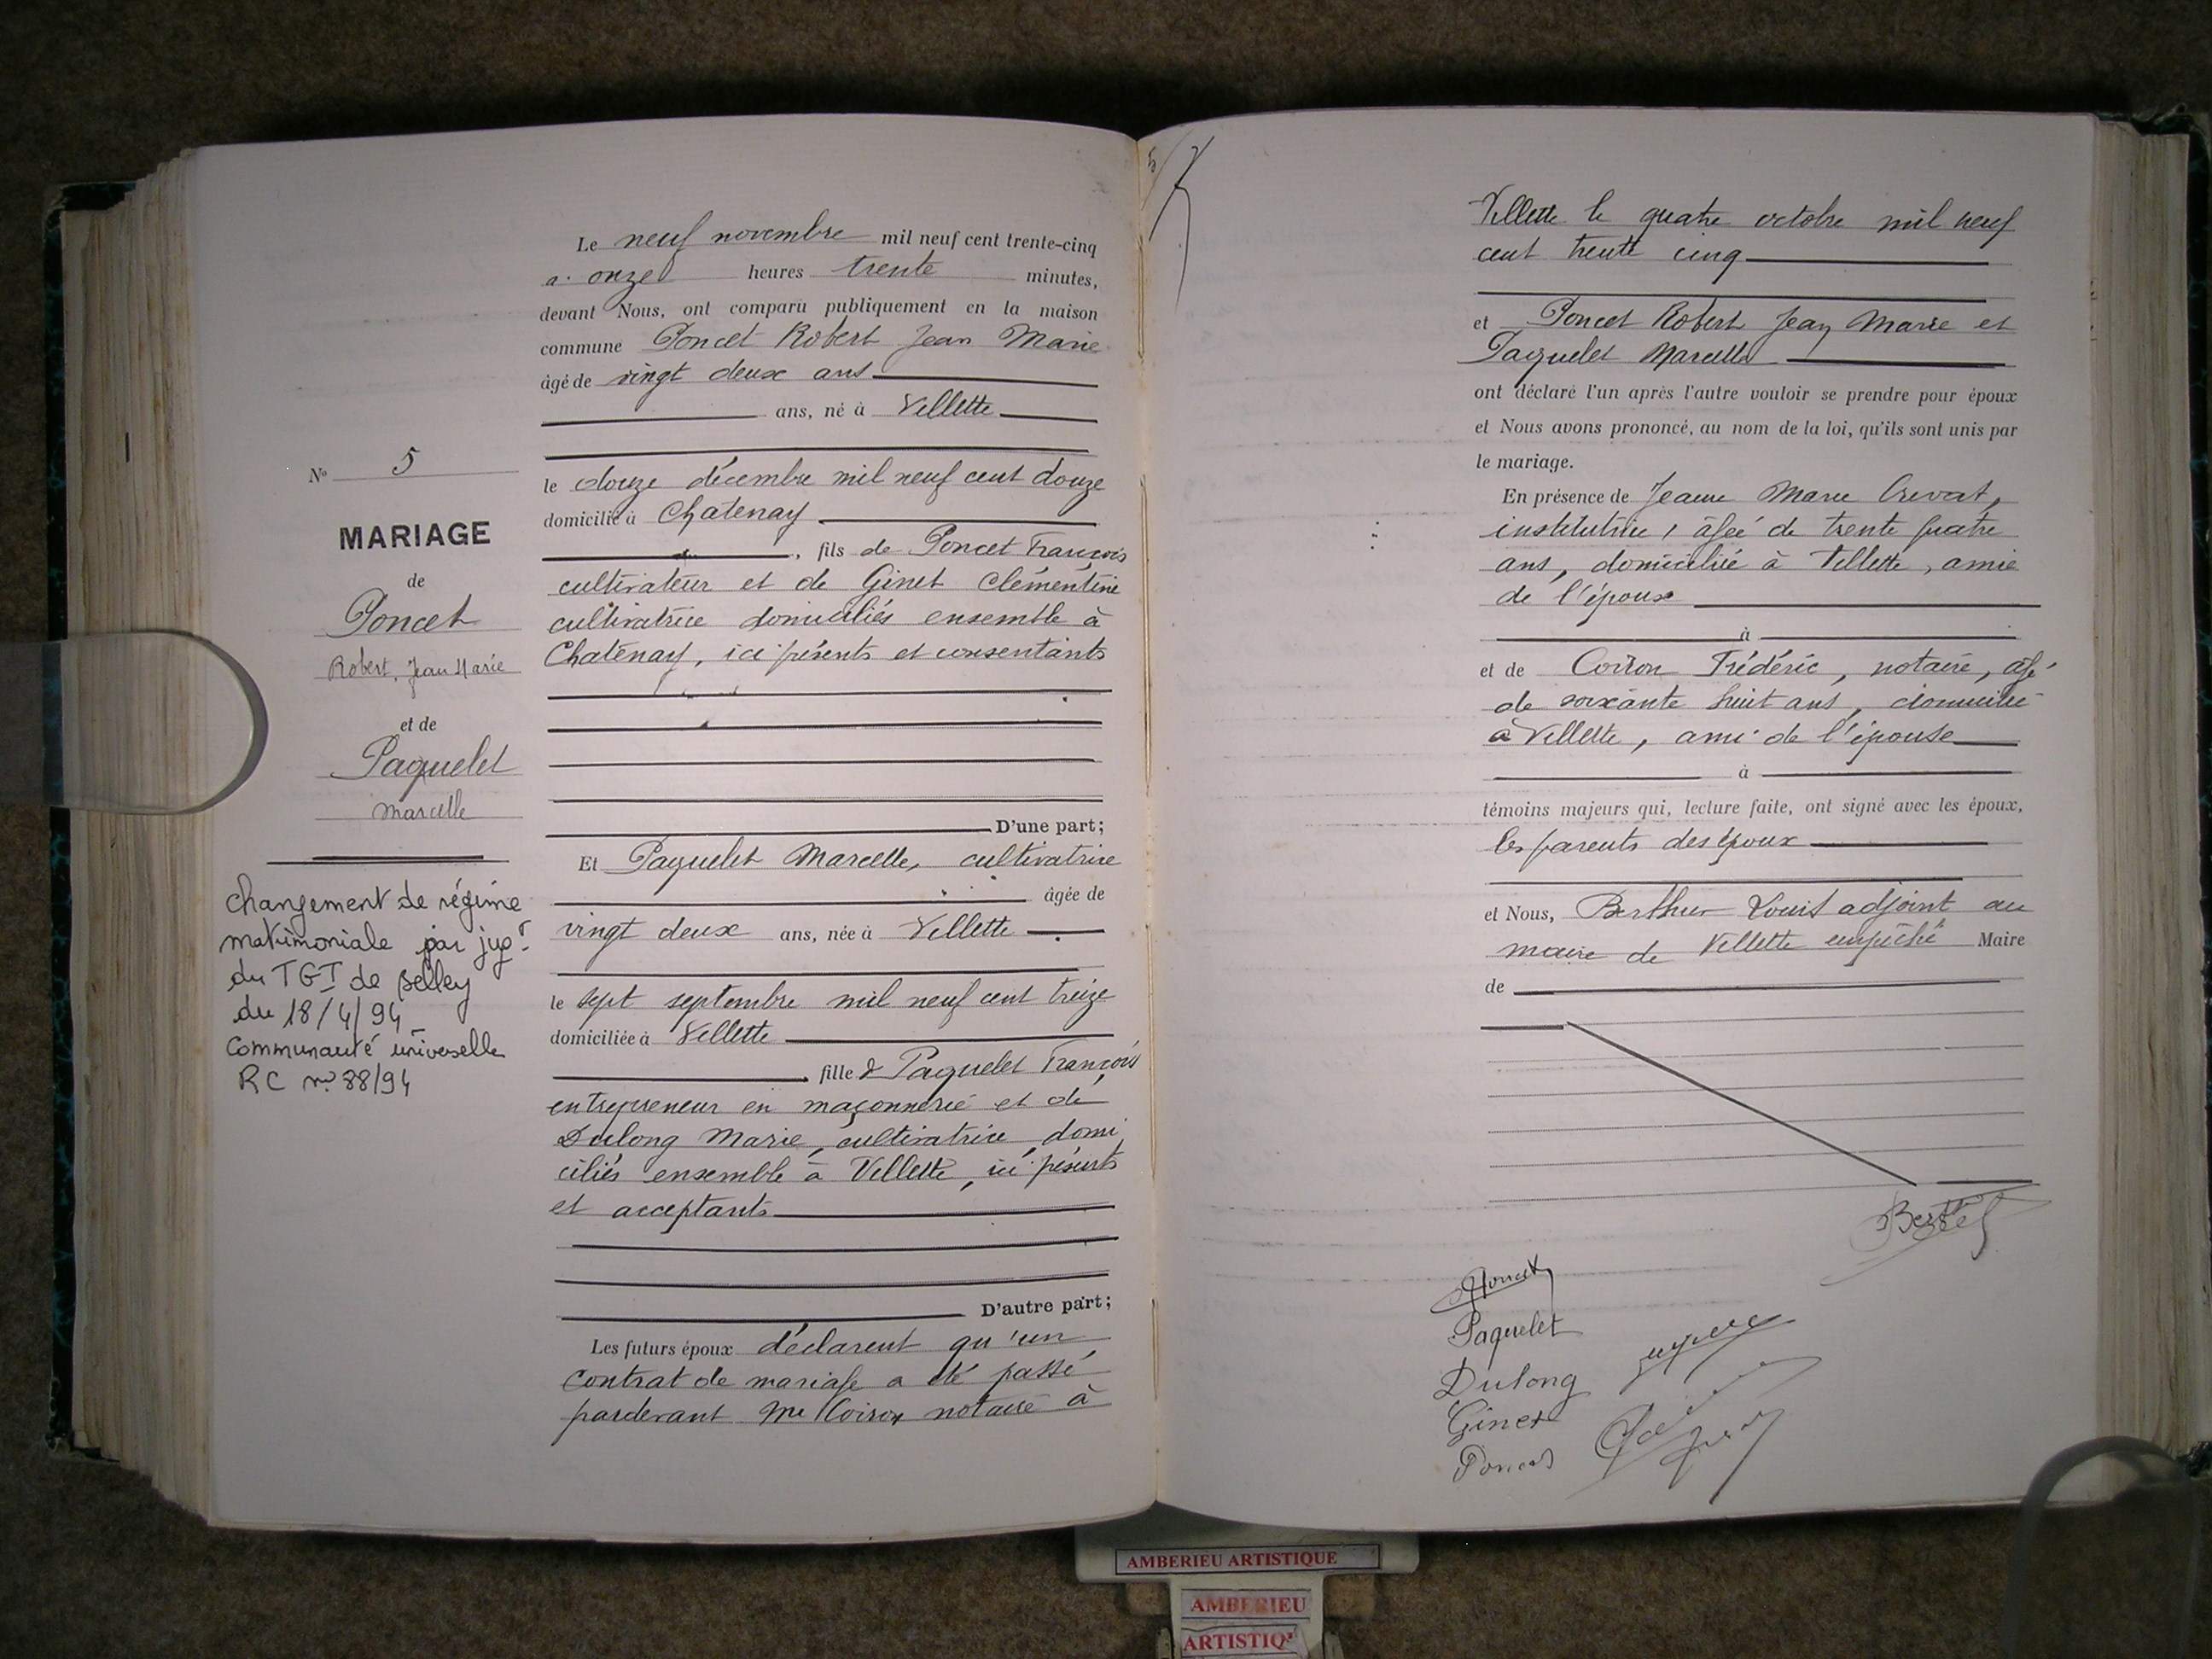 Le neuf novembre mil neuf cent trente-cinq
à onze heures trente minutes,
devant Nous, ont comparu publiquement en la maison
commune Poncet Robert Jean Marie
âgé de vingt deux ans
ans, né à Villette
N° 5
le douze décembre mil neuf cent douze
domicilié à Chatenay
MARIAGE
, fils de Poncet François
de
cultivateur et de Ginet Clémentine
Poncet
cultivatrice domiciliés ensemble à
Robert, Jean Marie
Chatenay, ici présents et consentants
et de
Paquelet
Marcelle
D'une part;
Et Paquelet Marcelle, cultivatrice
âgée de
vingt deux ans, née à Villette
changement de régime
matrimoniale par jugt
du TGI de Belley
du 18/4/94
Communauté universelle
RC n° 88/94
le sept septembre mil neuf cent treize
domiciliée à Villette
fille d Paquelet François
entrepreneur en maçonnerie et de
Dulong Marie, cultivatrice, domi
ciliés ensemble à Villette, ici présents
et acceptants
D'autre part;
Les futurs époux déclarent qu'un
contrat de mariage a été passé
pardevant Me Coiron notaire à
5
Villette le quatre octobre mil neuf
cent trente cinq
et Poncet Robert Jean Marie et
Paquelet Marcelle
ont déclaré l'un après l'autre vouloir se prendre pour époux
et Nous avons prononcé, au nom de la loi, qu'ils sont unis par
le mariage.
En présence de Jeanne Marie Crevat,
institutrice, âgée de trente quatre
ans, domiciliée à Villette, amie
de l'époux
à
et de Coiron Frédéric, notaire, âgé
de soixante huit ans, domicilié
à Villette, ami de l'épouse
à
témoins majeurs qui, lecture faite, ont signé avec les époux,
les parents des époux
et Nous, Berthier Louis adjoint au
maire de Villette empêché Maire
de
Poncet
Paquelet
Dulong
Ginet
Poncet
AMBERIEU ARTISTIQUE
AMBERIEU
ARTISTIQ